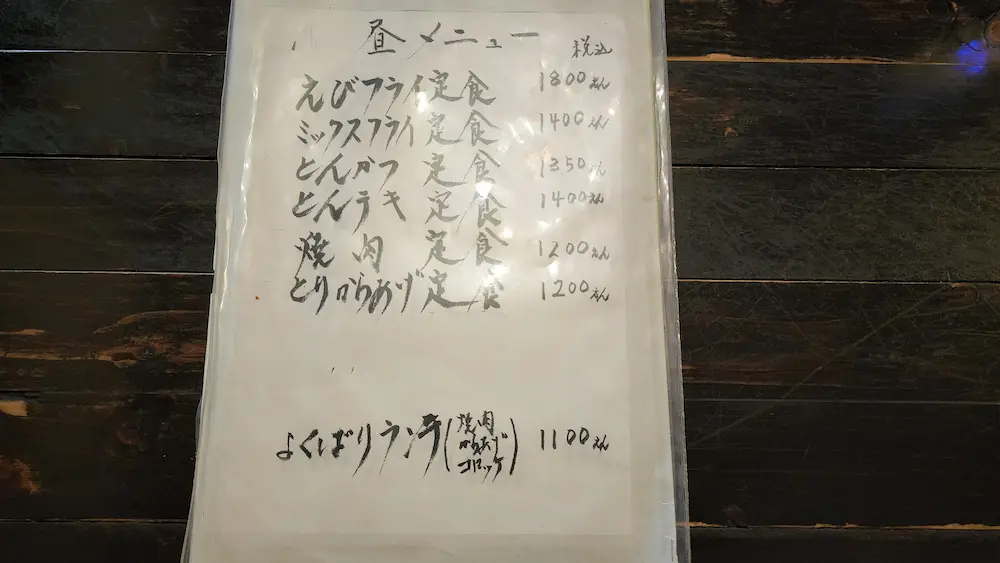 昼メニュー
税込
えびフライ定食 1800えん
ミックスフライ定食 1400えん
とんかつ 定食 1350えん
とんテキ 定食 1400えん
焼肉 定食 1200えん
とりからあげ定食 1200えん
よくばりランチ(焼肉 からあげ コロッケ) 1100えん